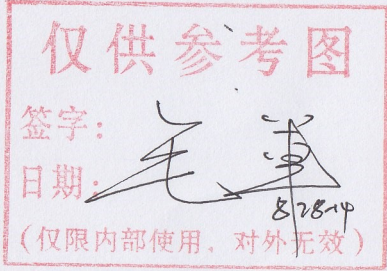 仅供参考图
签字：
日期：
8/28-14
（仅限内部使用，对外无效）